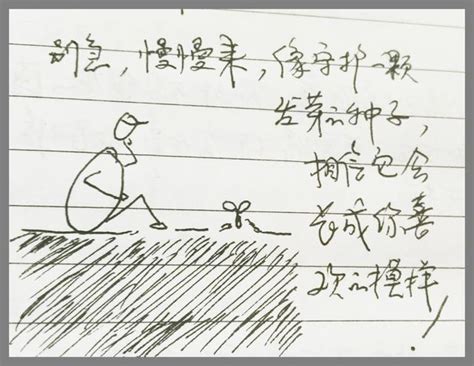 别急，慢慢来，像守护一颗
发芽的种子，
相信它会
长成你喜
欢的模样！